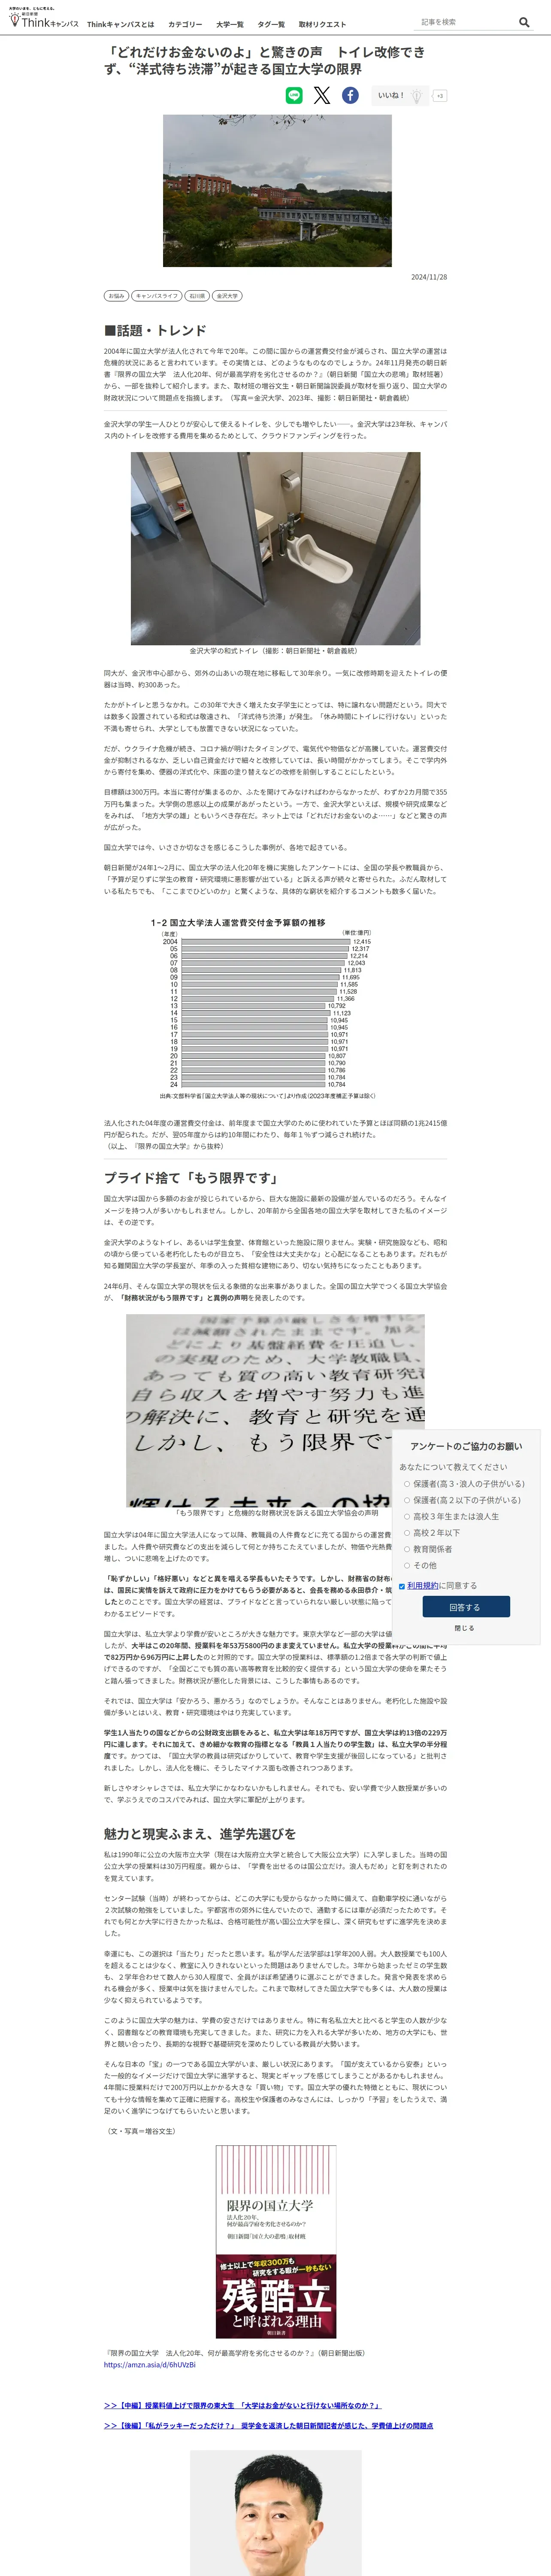 大学のいまを、ともに考える。
朝日新聞
Thinkキャンパス
Thinkキャンパスとは
カテゴリー
大学一覧
タグ一覧
取材リクエスト
記事を検索
「どれだけお金ないのよ」と驚きの声　トイレ改修でき
ず、“洋式待ち渋滞”が起きる国立大学の限界
いいね！
+3
2024/11/28
お悩み
キャンパスライフ
石川県
金沢大学
■話題・トレンド
2004年に国立大学が法人化されて今年で20年。この間に国からの運営費交付金が減らされ、国立大学の運営は
危機的状況にあると言われています。その実情とは、どのようなものなのでしょうか。24年11月発売の朝日新
書『限界の国立大学　法人化20年、何が最高学府を劣化させるのか？』（朝日新聞『国立大の悲鳴』取材班著）
から、一部を抜粋して紹介します。また、取材班の増谷文生・朝日新聞論説委員が取材を振り返り、国立大学の
財政状況について問題点を指摘します。（写真＝金沢大学、2023年、撮影：朝日新聞社・朝倉義統）
金沢大学の学生一人ひとりが安心して使えるトイレを、少しでも増やしたい――。金沢大学は23年秋、キャンパ
ス内のトイレを改修する費用を集めるためとして、クラウドファンディングを行った。
金沢大学の和式トイレ（撮影：朝日新聞社・朝倉義統）
同大が、金沢市中心部から、郊外の山あいの現在地に移転して30年余り。一気に改修時期を迎えたトイレの便
器は当時、約300あった。
たかがトイレと思うなかれ。この30年で大きく増えた女子学生にとっては、特に譲れない問題だという。同大で
は数多く設置されている和式は敬遠され、「洋式待ち渋滞」が発生。「休み時間にトイレに行けない」といった
不満も寄せられ、大学としても放置できない状況になっていた。
だが、ウクライナ危機が続き、コロナ禍が明けたタイミングで、電気代や物価などが高騰していた。運営費交付
金が抑制されるなか、乏しい自己資金だけで細々と改修していては、長い時間がかかってしまう。そこで学内外
から寄付を集め、便器の洋式化や、床面の塗り替えなどの改修を前倒しすることにしたという。
目標額は300万円。本当に寄付が集まるのか、ふたを開けてみなければわからなかったが、わずか2カ月間で355
万円も集まった。大学側の思惑以上の成果があがったという。一方で、金沢大学といえば、規模や研究成果など
をみれば、「地方大学の雄」ともいうべき存在だ。ネット上では「どれだけお金ないのよ……」などと驚きの声
が広がった。
国立大学では今、いささか切なさを感じるこうした事例が、各地で起きている。
朝日新聞が24年1～2月に、国立大学の法人化20年を機に実施したアンケートには、全国の学長や教職員から、
「予算が足りずに学生の教育・研究環境に悪影響が出ている」と訴える声が続々と寄せられた。ふだん取材して
いる私たちでも、「ここまでひどいのか」と驚くような、具体的な窮状を紹介するコメントも数多く届いた。
1-2 国立大学法人運営費交付金予算額の推移
（年度）
（単位:億円）
2004 12,415
05 12,317
06 12,214
07 12,043
08 11,813
09 11,695
10 11,585
11 11,528
12 11,366
13 10,792
14 11,123
15 10,945
16 10,945
17 10,971
18 10,971
19 10,971
20 10,807
21 10,790
22 10,786
23 10,784
24 10,784
出典:文部科学省「国立大学法人等の現状について」より作成（2023年度補正予算は除く）
法人化された04年度の運営費交付金は、前年度まで国立大学のために使われていた予算とほぼ同額の1兆2415億
円が配られた。だが、翌05年度からは約10年間にわたり、毎年１％ずつ減らされ続けた。
（以上、『限界の国立大学』から抜粋）
プライド捨て「もう限界です」
国立大学は国から多額のお金が投じられているから、巨大な施設に最新の設備が並んでいるのだろう。そんなイ
メージを持つ人が多いかもしれません。しかし、20年前から全国各地の国立大学を取材してきた私のイメージ
は、その逆です。
金沢大学のようなトイレ、あるいは学生食堂、体育館といった施設に限りません。実験・研究施設なども、昭和
の頃から使っている老朽化したものが目立ち、「安全性は大丈夫かな」と心配になることもあります。だれもが
知る難関国立大学の学長室が、年季の入った貧相な建物にあり、切ない気持ちになったこともあります。
24年6月、そんな国立大学の現状を伝える象徴的な出来事がありました。全国の国立大学でつくる国立大学協会
が、「財務状況がもう限界です」と異例の声明を発表したのです。
国家予算が厳しさを増すに
により減額された基金を圧迫し、
実現のため、大学教職員、
質の高い教育研究活
自ら収入を増やす努力も進
の解決に、教育と研究を通
しかし、もう限界です。
輝ける未来への協
「もう限界です」と危機的な財務状況を訴える国立大学協会の声明
国立大学は04年に国立大学法人になって以降、教職員の人件費などに充てる国からの運営費
ました。人件費や研究費などの支出を減らして何とか持ちこたえていましたが、物価や光熱費
増し、ついに悲鳴を上げたのです。
「恥ずかしい」「格好悪い」などと異を唱える学長もいたそうです。しかし、財務省の財布の
は、国民に実情を訴えて政府に圧力をかけてもらう必要があると、会長を務める永田恭介・筑
したとのことです。国立大学の経営は、プライドなどと言っていられない厳しい状態に陥って
わかるエピソードです。
国立大学は、私立大学より学費が安いところが大きな魅力です。東京大学など一部の大学は値
したが、大半はこの20年間、授業料を年53万5800円のまま変えていません。私立大学の授業料がこの間に平均
で82万円から96万円に上昇したのと対照的です。国立大学の授業料は、標準額の1.2倍まで各大学の判断で値上
げできるのですが、「全国どこでも質の高い高等教育を比較的安く提供する」という国立大学の使命を果たそう
と踏ん張ってきました。財務状況が悪化した背景には、こうした事情もあるのです。
それでは、国立大学は「安かろう、悪かろう」なのでしょうか。そんなことはありません。老朽化した施設や設
備が多いとはいえ、教育・研究環境はやはり充実しています。
学生1人当たりの国などからの公財政支出額をみると、私立大学は年18万円ですが、国立大学は約13倍の229万
円に達します。それに加えて、きめ細かな教育の指標となる「教員１人当たりの学生数」は、私立大学の半分程
度です。かつては、「国立大学の教員は研究ばかりしていて、教育や学生支援が後回しになっている」と批判さ
れました。しかし、法人化を機に、そうしたマイナス面も改善されつつあります。
新しさやオシャレさでは、私立大学にかなわないかもしれません。それでも、安い学費で少人数授業が多いの
で、学ぶうえでのコスパでみれば、国立大学に軍配が上がります。
アンケートのご協力のお願い
あなたについて教えてください
保護者(高３･浪人の子供がいる)
保護者(高２以下の子供がいる)
高校３年生または浪人生
高校２年以下
教育関係者
その他
利用規約に同意する
回答する
閉じる
魅力と現実ふまえ、進学先選びを
私は1990年に公立の大阪市立大学（現在は大阪府立大学と統合して大阪公立大学）に入学しました。当時の国
公立大学の授業料は30万円程度。親からは、「学費を出せるのは国公立だけ。浪人もだめ」と釘を刺されたの
を覚えています。
センター試験（当時）が終わってからは、どこの大学にも受からなかった時に備えて、自動車学校に通いながら
２次試験の勉強をしていました。宇都宮市の郊外に住んでいたので、通勤するには車が必須だったためです。そ
れでも何とか大学に行きたかった私は、合格可能性が高い国公立大学を探し、深く研究もせずに進学先を決めま
した。
幸運にも、この選択は「当たり」だったと思います。私が学んだ法学部は1学年200人弱。大人数授業でも100人
を超えることは少なく、教室に入りきれないといった問題はありませんでした。3年から始まったゼミの学生数
も、２学年合わせて数人から30人程度で、全員がほぼ希望通りに選ぶことができました。発言や発表を求めら
れる機会が多く、授業中は気を抜けませんでした。これまで取材してきた国立大学でも多くは、大人数の授業は
少なく抑えられているようです。
このように国立大学の魅力は、学費の安さだけではありません。特に有名私立大と比べると学生の人数が少な
く、図書館などの教育環境も充実してきました。また、研究に力を入れる大学が多いため、地方の大学にも、世
界と競い合ったり、長期的な視野で基礎研究を深めたりしている教員が大勢います。
そんな日本の「宝」の一つである国立大学がいま、厳しい状況にあります。「国が支えているから安泰」といっ
た一般的なイメージだけで国立大学に進学すると、現実とギャップを感じてしまうことがあるかもしれません。
4年間に授業料だけで200万円以上かかる大きな「買い物」です。国立大学の優れた特徴とともに、現状について
も十分な情報を集めて正確に把握する。高校生や保護者のみなさんには、しっかり「予習」をしたうえで、満
足のいく進学につなげてもらいたいと思います。
（文・写真＝増谷文生）
限界の国立大学
法人化20年、
何が最高学府を劣化させるのか？
朝日新聞「国立大の悲鳴」取材班
修士以上で年収300万も
研究をする暇が一秒もない
残酷立
と呼ばれる理由
朝日新書
『限界の国立大学　法人化20年、何が最高学府を劣化させるのか？』（朝日新聞出版）
https://amzn.asia/d/6hUVzBi
＞＞【中編】授業料値上げで限界の東大生　「大学はお金がないと行けない場所なのか？」
＞＞【後編】「私がラッキーだっただけ？」　奨学金を返済した朝日新聞記者が感じた、学費値上げの問題点